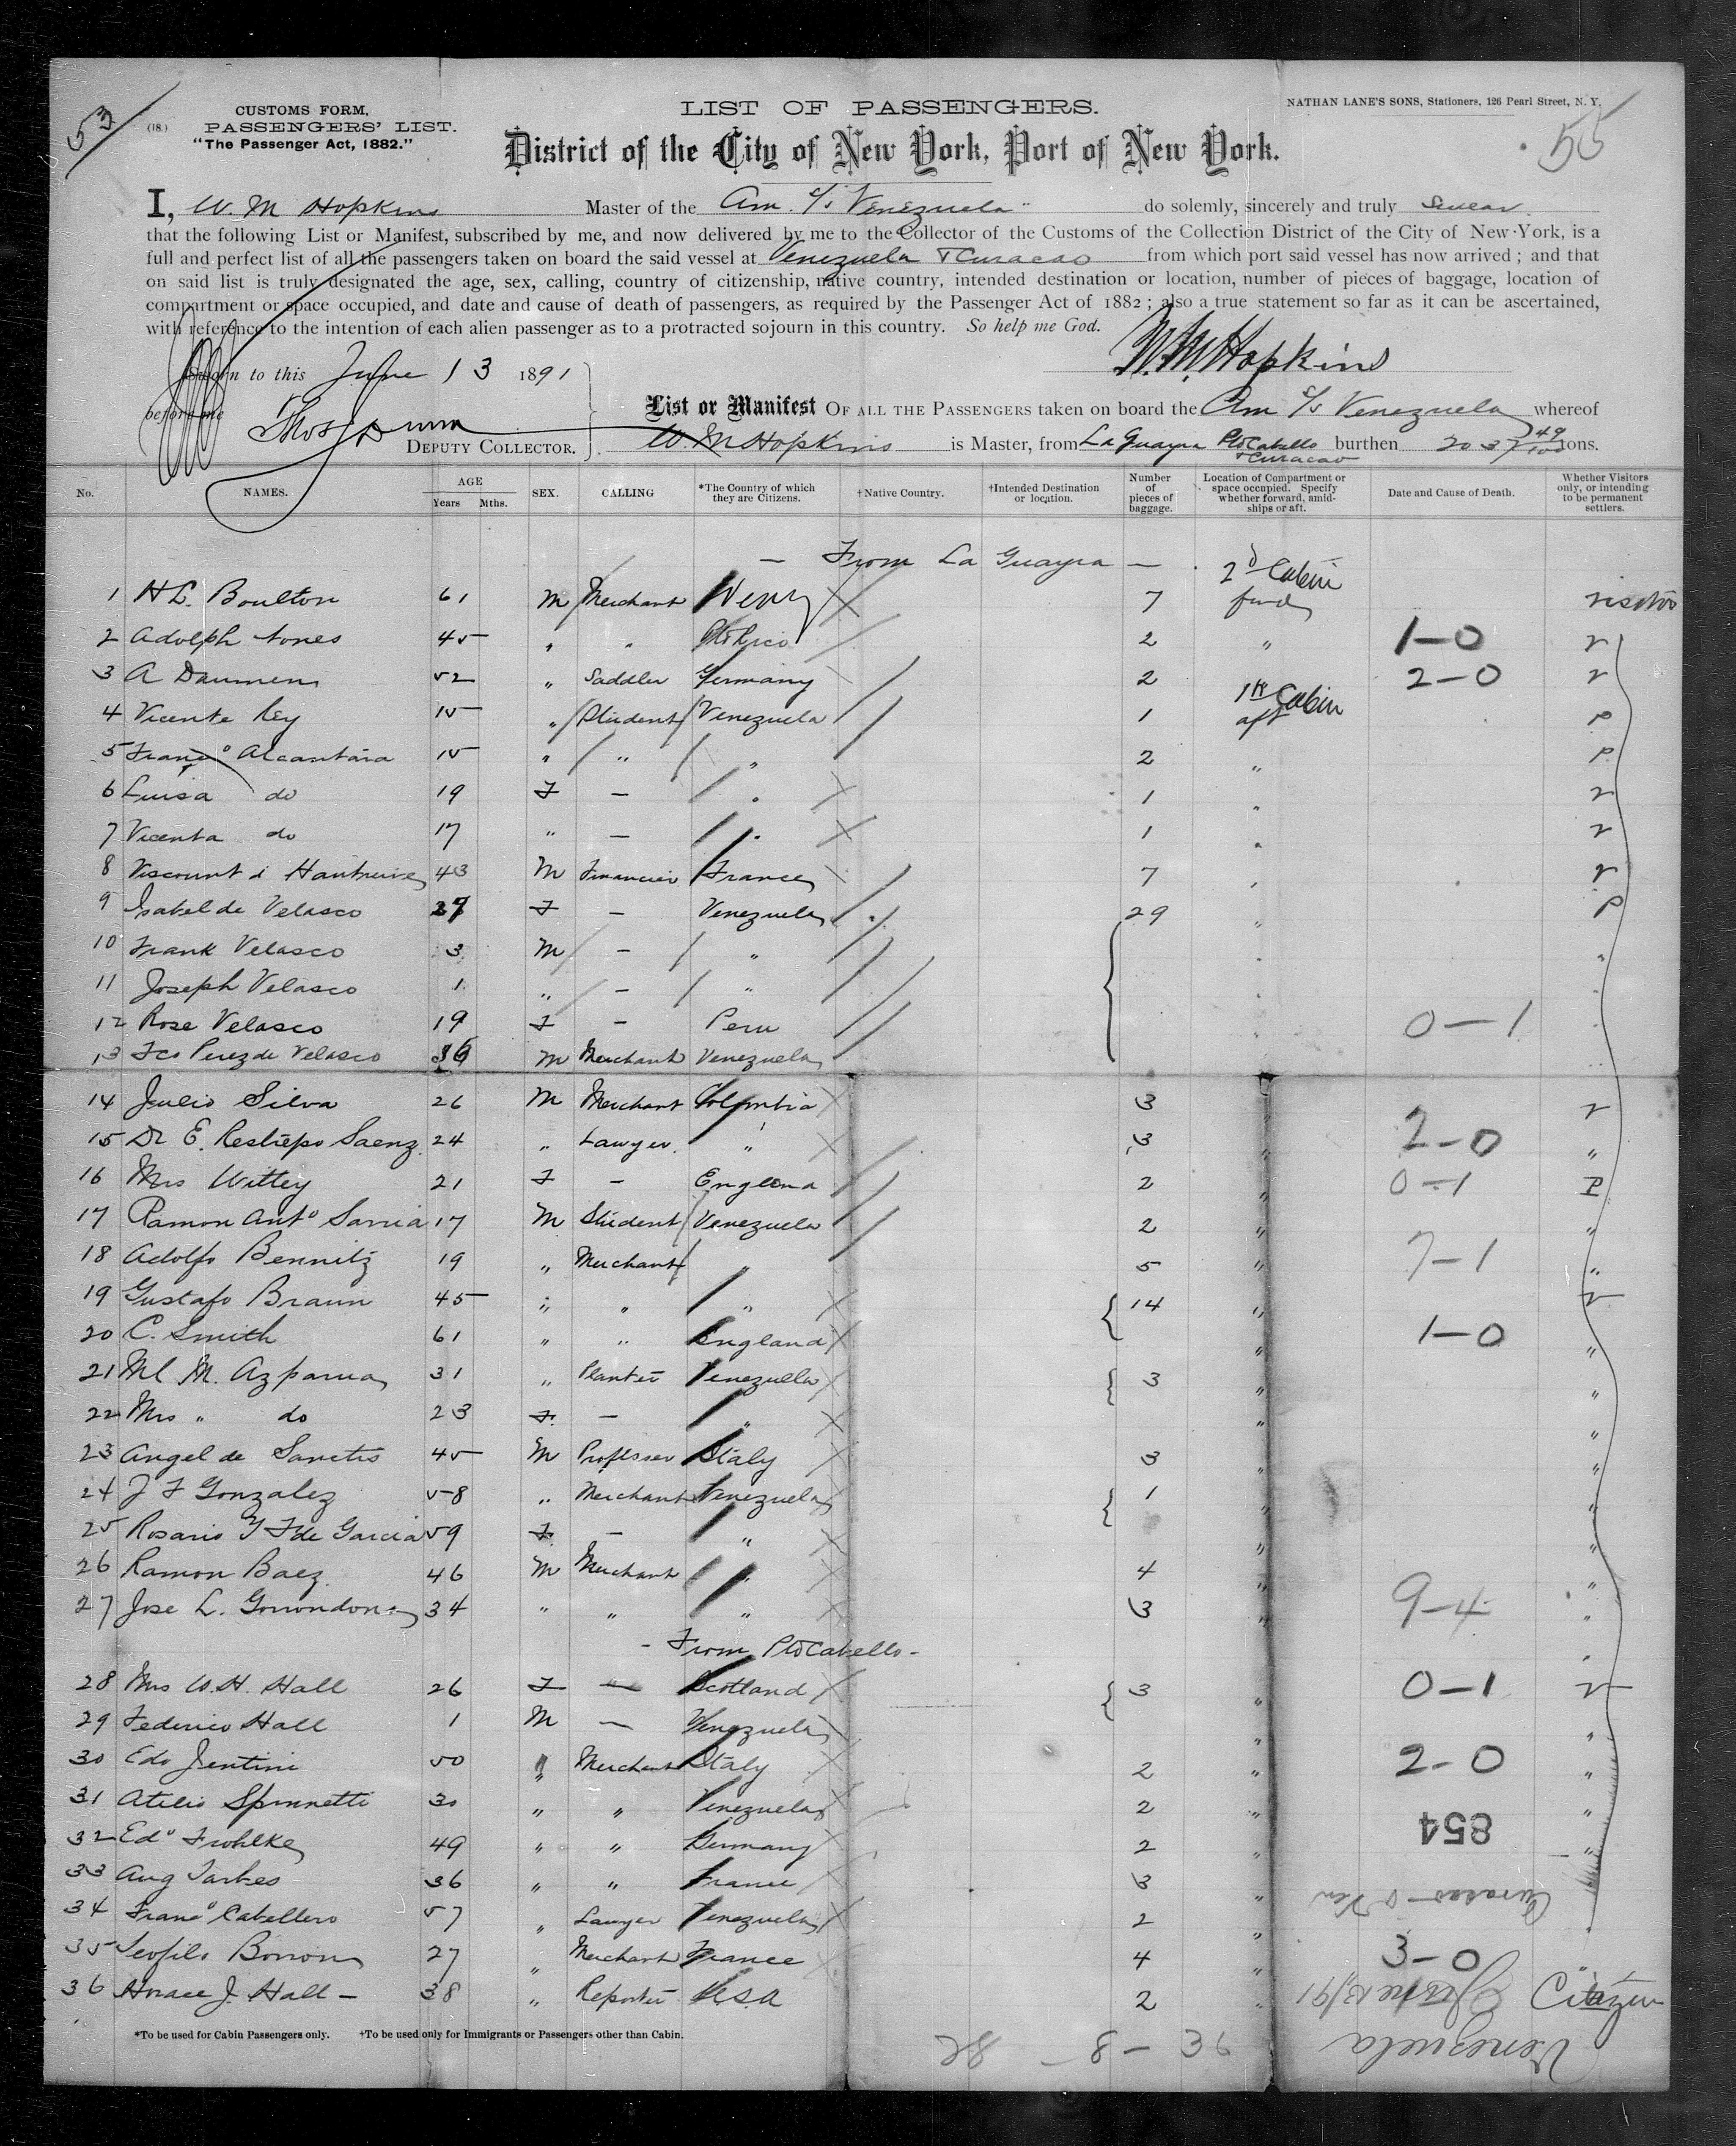 53
(18.)
CUSTOMS FORM,
PASSENGERS' LIST.
"The Passenger Act, 1882."
LIST OF PASSENGERS.
District of the City of New York, Port of New York.
NATHAN LANE'S SONS, Stationers, 126 Pearl Street, N. Y.
55
I, W. M Hopkins Master of the Am. S/s Venezuela do solemly, sincerely and truly swear
that the following List or Manifest, subscribed by me, and now delivered by me to the Collector of the Customs of the Collection District of the City of New-York, is a
full and perfect list of all the passengers taken on board the said vessel at Venezuela & Curacao from which port said vessel has now arrived; and that
on said list is truly designated the age, sex, calling, country of citizenship, native country, intended destination or location, number of pieces of baggage, location of
compartment or space occupied, and date and cause of death of passengers, as required by the Passenger Act of 1882; also a true statement so far as it can be ascertained,
with reference to the intention of each alien passenger as to a protracted sojourn in this country. So help me God.
W. M. Hopkins
Sworn to this June 13 1891
before me Thos J Dunn
DEPUTY COLLECTOR.
List or Manifest OF ALL THE PASSENGERS taken on board the Am S/s Venezuela whereof
W. M Hopkins is Master, from La Guayra Pto Cabello & Curacao burthen 2037 49/100 tons.
No. NAMES. AGE Years Mths. SEX. CALLING *The Country of which they are Citizens. †Native Country. †Intended Destination or location. Number of pieces of baggage. Location of Compartment or space occupied. Specify whether forward, amidships or aft. Date and Cause of Death. Whether Visitors only, or intending to be permanent settlers.
— From La Guayra —
1 H L. Boulton 61 M Merchant 7 2d Cabin fwd visitor
2 Adolph 45 " " Pto Rico 2 " 1-0 v
3 A Daumen 52 " Saddler Germany 2 2-0 v
4 Vicente Rey 15 " Student Venezuela 1 1st Cabin aft P
5 Franco Alcantara 15 " " " 2 " P
6 Luisa do 19 F — " 1 " v
7 Vicenta do 17 " — " 1 " v
8 Viscount d 43 M Financier France 7 " v
9 Isabel de Velasco 27 F — Venezuela 29 " P
10 Frank Velasco 3 M — " " "
11 Joseph Velasco 1 " — " "
12 Rose Velasco 19 F — Peru " 0-1
13 Fco Perez de Velasco 36 M Merchant Venezuela
14 Julio Silva 26 M Merchant Colombia 3 " v
15 Dr E. Restrepo Saenz 24 " Lawyer " 3 " 2-0 "
16 Mrs Wittey 21 F — England 2 " 0-1 P
17 Ramon Anto Sarria 17 M Student Venezuela 2 " "
18 Adolfo Bennitz 19 " Merchant " 5 " 7-1 "
19 Gustafo Braun 45 " " " 14 " v
20 C. Smith 61 " " England " 1-0 "
21 Ml M. Azparua 31 " Planter Venezuela 3 " "
22 Mrs " do 23 F. — " " "
23 Angel de Sanctis 45 M Professor Italy 3 " "
24 J F Gonzalez 58 " Merchant Venezuela 1 " "
25 Rosario Y F de Garcia 59 F. — " " "
26 Ramon Baez 46 M Merchant " 4 " "
27 Jose L. 34 " " " 3 " 9-4 "
- From Pto Cabello -
28 Mrs W. H. Hall 26 F — Scotland 3 " 0-1 v
29 Federico Hall 1 M — Venezuela " "
30 Edo Jentini 50 " Merchant Italy 2 " 2-0 "
31 Atilio Spinnetti 30 " " Venezuela 2 " "
32 Edo Frohlke 49 " " Germany 2 " "
854
33 Aug Tarbes 36 " " France 3 "
Curacao & Ven
34 Franco Caballero 57 " Lawyer Venezuela 2 "
35 Teofilo 27 " Merchant France 4 " 3-0 "
36 Horace J. Hall — 38 " Reporter U.S.A 2 " Citizen
June 13/91
Venezuela
*To be used for Cabin Passengers only. †To be used only for Immigrants or Passengers other than Cabin.
28 — 8 — 36